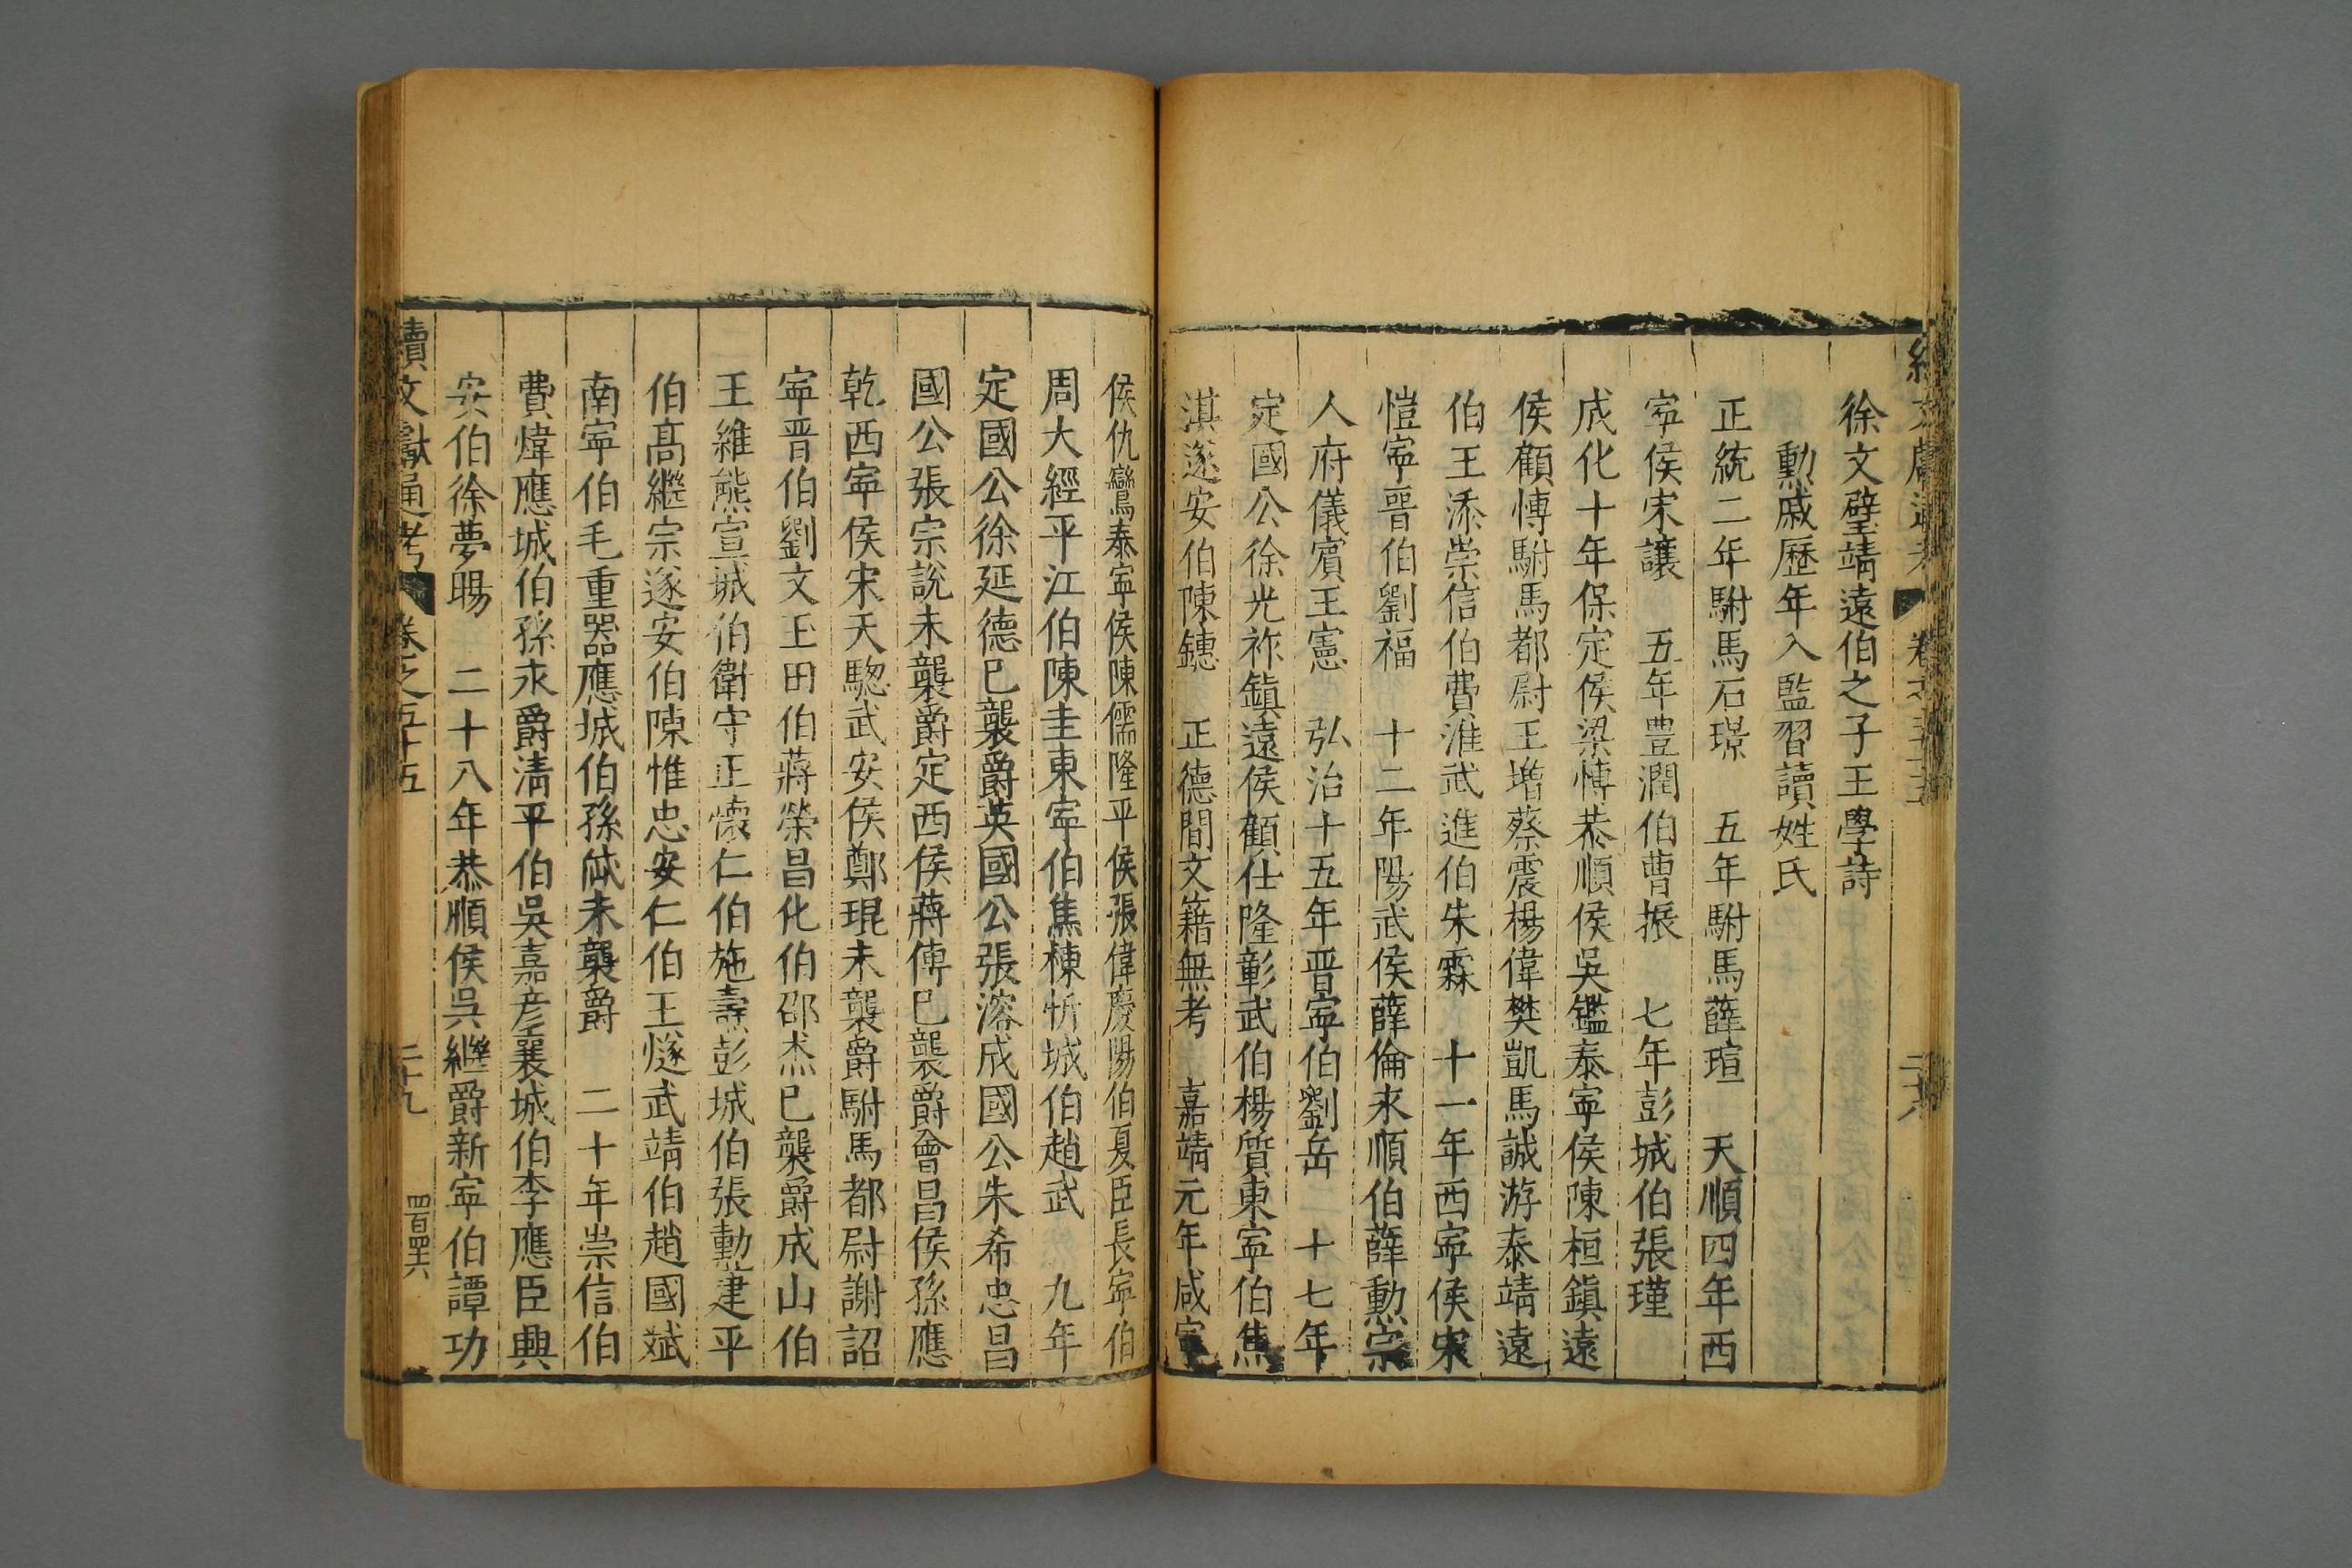 徐文璧靖遠伯之子王學詩
勲戚歷年入監習讀姓氏
正統二年駙馬石璟　五年駙馬薛瑄　天順四年西
寜侯宋讓　五年豊潤伯曹振　七年彭城伯張瑾
成化十年保定侯梁愽恭順侯吳鑑泰寜侯陳桓鎮遠
侯顧愽駙馬都尉王增蔡震楊偉樊凱馬誠游泰靖遠
伯王添崇信伯費淮武進伯朱霖　十一年西寜侯宋
愷寜晋伯劉福　十二年陽武侯薛倫永順伯薛勲宗
人府儀賓王憲　弘治十五年晋寜伯劉岳　十七年
定國公徐光祚鎮遠侯顧仕隆彰武伯楊質東寜伯焦
淇遂安伯陳鏸　正德間文籍無考　嘉靖元年咸寜
侯仇鸞泰寜侯陳儒隆平侯張偉慶陽伯夏臣長寜伯
周大經平江伯陳圭東寜伯焦棟忻城伯趙武　九年
定國公徐延德已襲爵英國公張溶成國公朱希忠昌
國公張宗說未襲爵定西侯蔣傅已襲爵會昌侯孫應
乾西寜侯宋天騘武安侯鄭琨未襲爵駙馬都尉謝詔
寜晋伯劉文玉田伯蔣榮昌化伯邵杰已襲爵成山伯
王維熊宣城伯衛守正懷仁伯施壽彭城伯張勲建平
伯髙繼宗遂安伯陳惟忠安仁伯王燧武靖伯趙國斌
南寜伯毛重器應城伯孫未襲爵　二十年崇信伯
費煒應城伯孫永爵清平伯吳嘉彥襄城伯李應臣興
安伯徐夢暘　二十八年恭順侯吳繼爵新寜伯譚功
續文獻通考　卷之五十五　二十九　四百四十六